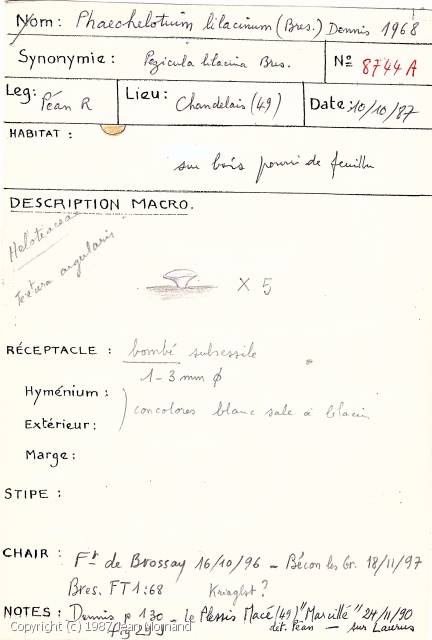 Nom: Phaeohelotium lilacinum (Bres.) Dennis 1968
Synonymie: Pezicula lilacina Bres. No 8744 A
Leg: Péan R Lieu: Chandelais (49) Date: 10/10/87
HABITAT :
sur bois pourri de feuillu
DESCRIPTION MACRO.
Heloteaceae
Textura angularis
X 5
RÉCEPTACLE : bombé subsessile
1-3 mm ϕ
Hyménium :
concolores blanc sale à lilacin
Extérieur :
Marge :
STIPE :
CHAIR : Ft de Brossay 16/10/96 - Bécon les Gr. 18/11/97
Bres. FT1:68
NOTES : Dennis p 130 - Le Plessis Macé (49) "Marcillé" 24/11/90
det. Péan - sur Laurus
Copyright (c) 1987 Jean Mornand